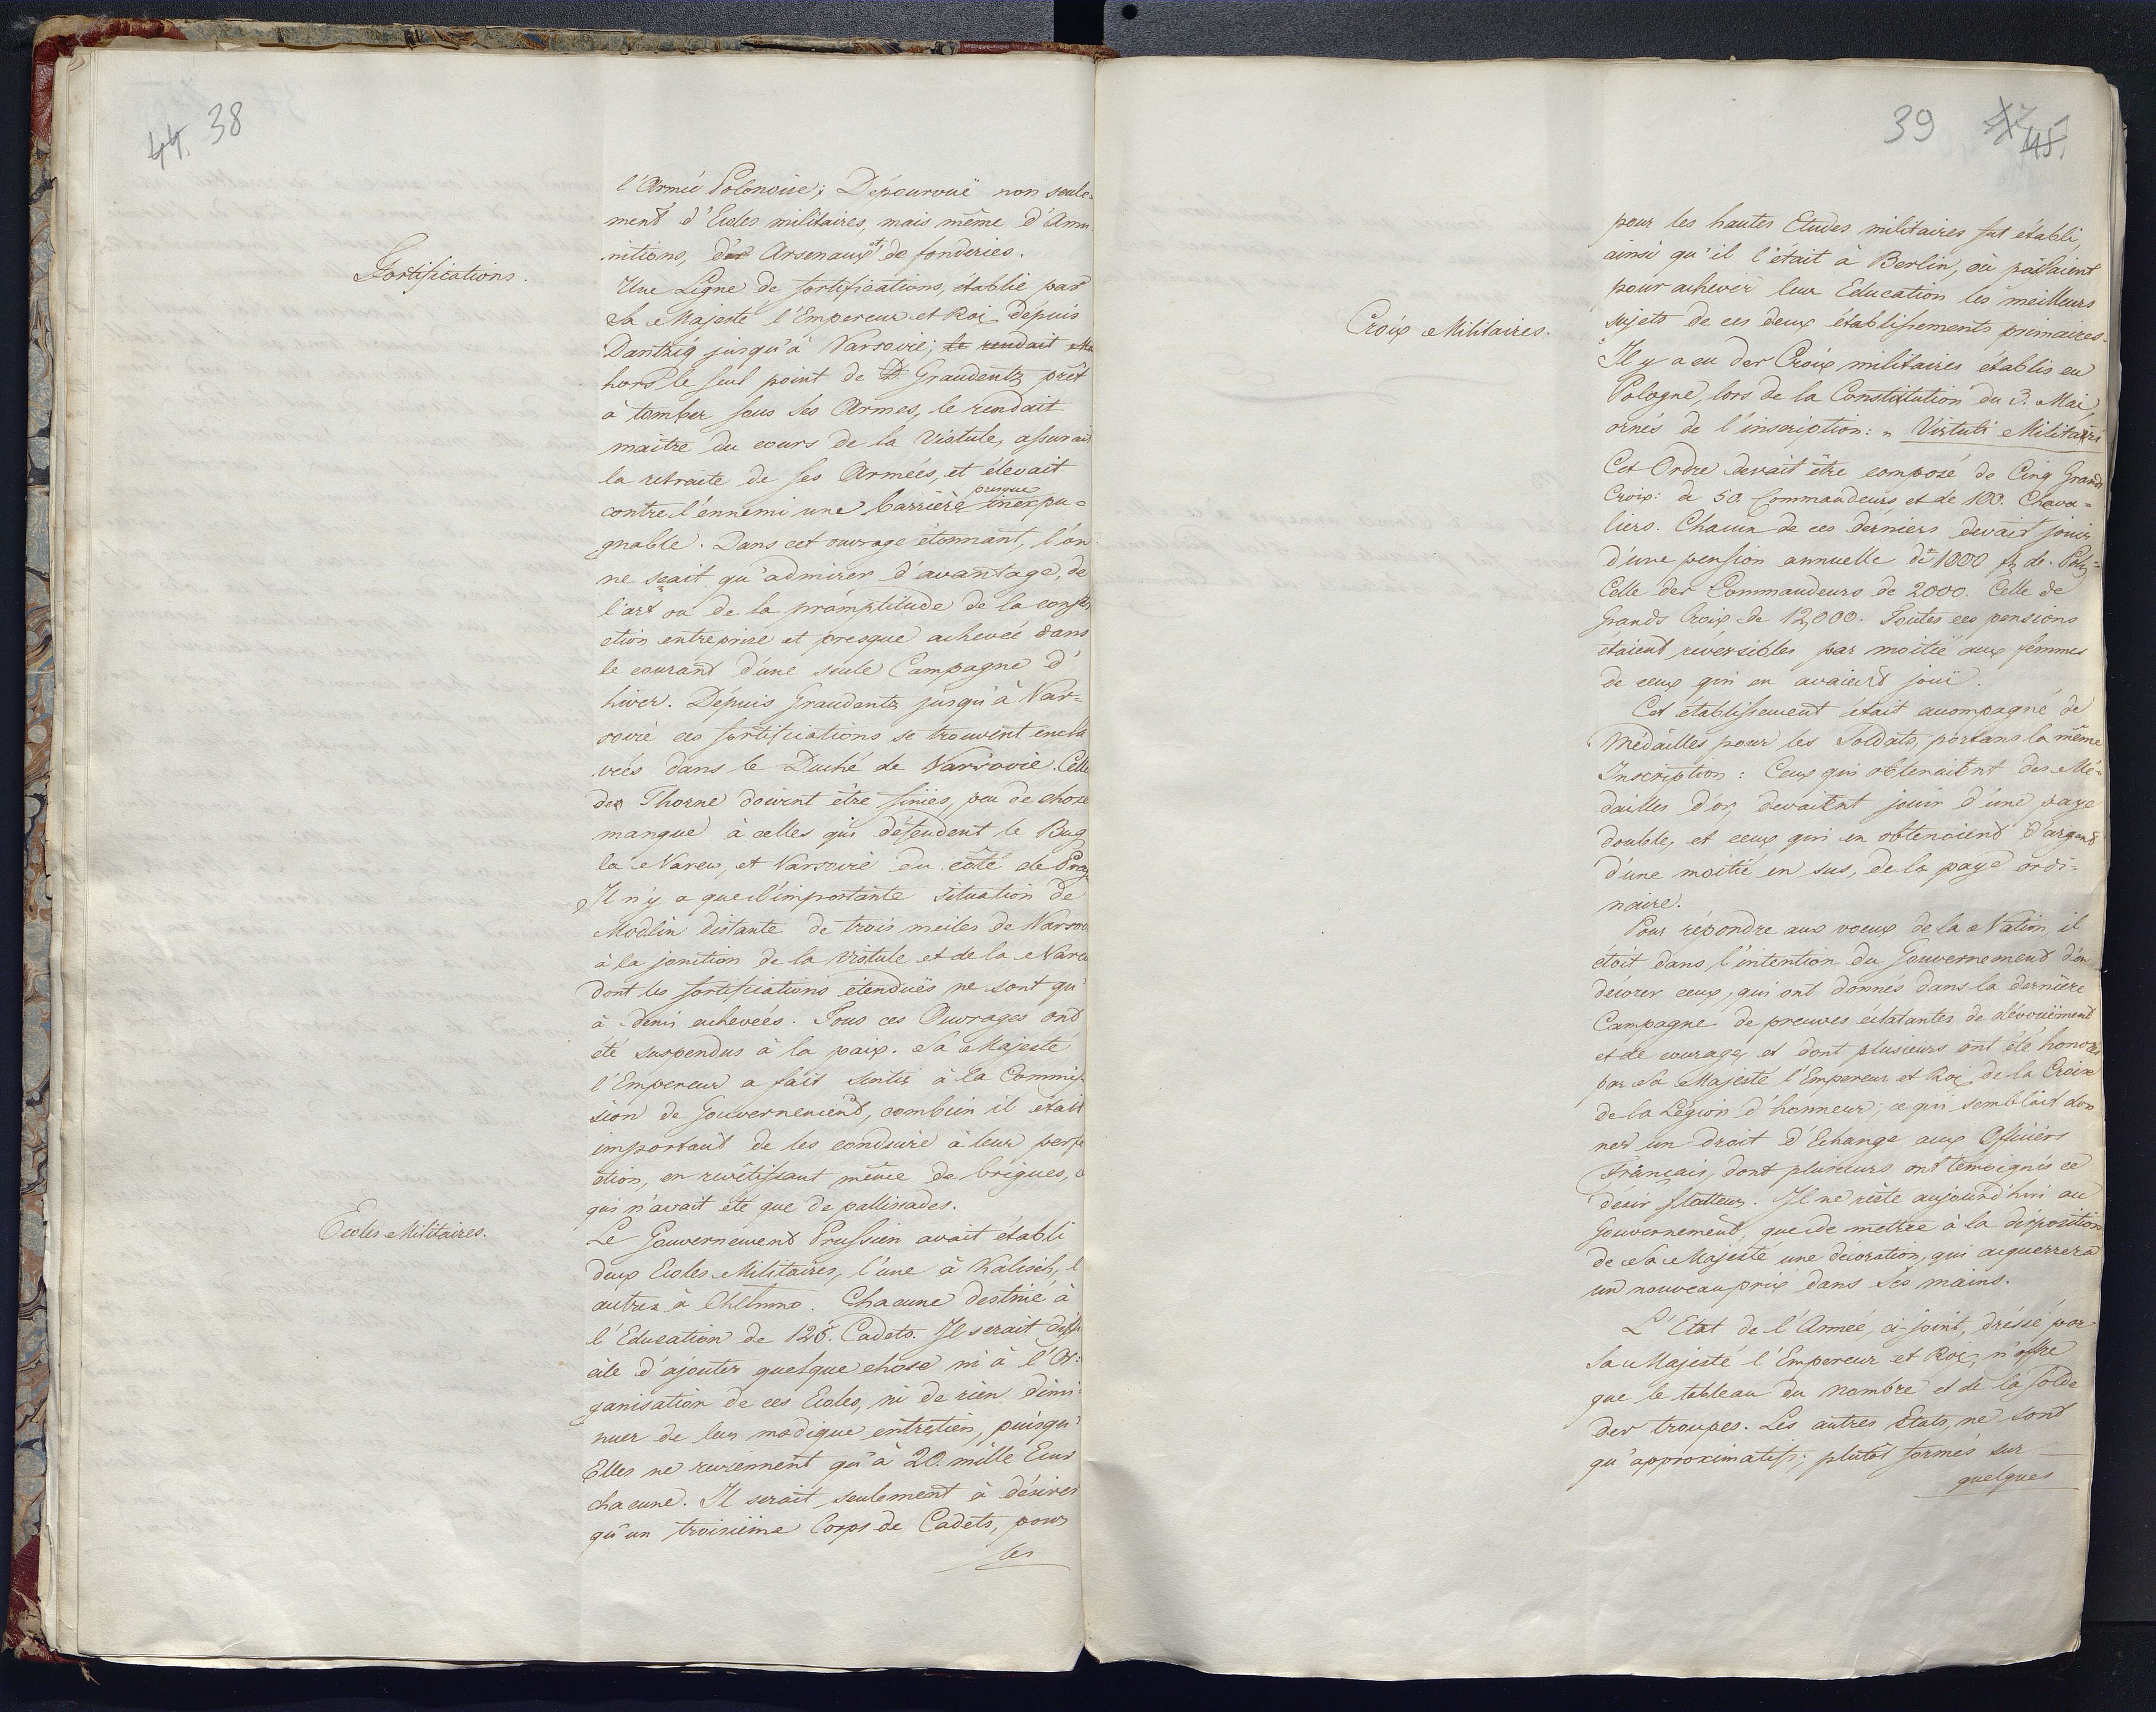 44. 38
l'Armée Polonoise; Dépourvuë non seule-
ment d'Ecoles militaires, mais même d'Amu
nitions, des Arsenaux et de fonderies.
Fortifications.
Une Ligne de fortifications, établie par
Sa Majesté l'Empereur et Roi, dépuis
Dantzig jusqu'à Varsovie; le rendait
hors le seul point de Graudentz prêt
à tomber sous ses Armes, le rendait
maître du cours de la Vistule, assurait
la retraite de ses Armées, et élevait
contre l'ennemi une barrière presque inexpu-
gnable. Dans cet ouvrage étonnant, l'on
ne sçait qu'admirer d'avantage, de
l'art ou de la promptitude de la constru
ction entreprise et presque achevée dans
le courant d'une seule Campagne d'
hiver. Dépuis Graudentz jusqu'à Var-
sovie ces fortifications se trouvent encla
vées dans le Duché de Varsovie. Celle
de Thorne doivent être finiés, peu de chose
manque à celles qui défendent le Bug
la Narew, et Varsovie du côté de Prag
Il n'y a que l'importante situation de
Modlin distante de trois meiles de Varsov
à la jonition de la Vistule et de la Narew
dont les fortifications étenduës ne sont qu'
à demi achevées. Tous ces Ouvrages ont
été suspendus à la paix. Sa Majesté
l'Empereur a fait sentir à la Commis-
sion de Gouvernement, combien il était
important de les conduire à leur perfe
ction, en revêtissant même de briques, ce
qui n'avait été que de pallisades.
Ecoles Militaires.
Le Gouvernement Prussien avait établi
deux Ecoles Militaires, l'une à Kalisch, l'
autre à Chelmno. Chacune destiné à
l'Education de 125. Cadets. Il serait diffi
cile d'ajouter quelque chose ni à l'Or-
ganisation de ces Ecoles, ni de rien dimi-
nuer de leur modique entretien, puisqu'
Elles ne reviennent qu'à 20. mille Ecus
chacune. Il serait seulement à désirer
qu'un troisième Corps de Cadets, pour
les
39 45.
pour les hautes Etudes militaires fut établi,
ainsi qu'il l'était à Berlin, où passaient
pour achever leur Education les meilleurs
sujets de ces deux établissements primaires.
Croix Militaires.
Il y a eu des Croix militaires établis en
Pologne, lors de la Constitution du 3. Mai,
ornés de l'inscription: „ Virtuti Militari
Cet Ordre devait être composé de Cinq Grands
Croix: de 50. Commandeurs et de 100. Cheva-
liers. Chacun de ces derniers devait jouir
d'une pension annuelle de 1000 fl. de. Pol.
Celle des Commandeurs de 2000. Celle de
Grands Croix de 12,000. Toutes ces pensions
étaient réversibles par moitié aux femmes
de ceux qui en avaient jouï.
Cet établissement était accompagné de
Médailles pour les Soldats, portans la même
Inscription: Ceux qui obtenaient des Mé-
dailles d'or, devaient jouir d'une paye
double, et ceux qui en obtenoient d'argent
d'une moitié en sus, de la paye ordi-
naire.
Pour répondre aux voeux de la Nation, il
étoit dans l'intention du Gouvernement d'en
décorer ceux, qui ont donnés dans la dernière
Campagne de preuves éclatantes de dévoüement
et de courage, et dont plusieurs ont été honorés
par Sa Majesté l'Empereur et Roi, de la Croix
de la Légion d'honneur; ce qui semblait don
ner un droit d'Echange aux Officiers
Français, dont plusieurs ont témoignés ce
désir flatteur. Il ne reste aujourd'hui au
Gouvernement, que de mettre à la disposition
de Sa Majesté une décoration, qui acquerrera
un nouveau prix dans Ses mains.
L'Etat de l'Armée, ci-joint, dréssé par
Sa Majesté l'Empereur et Roi, n'offre
que le tableau du nombre et de la solde
des troupes. Les autres Etats, ne sont
qu'approximatifs; plutôt formés sur
quelques